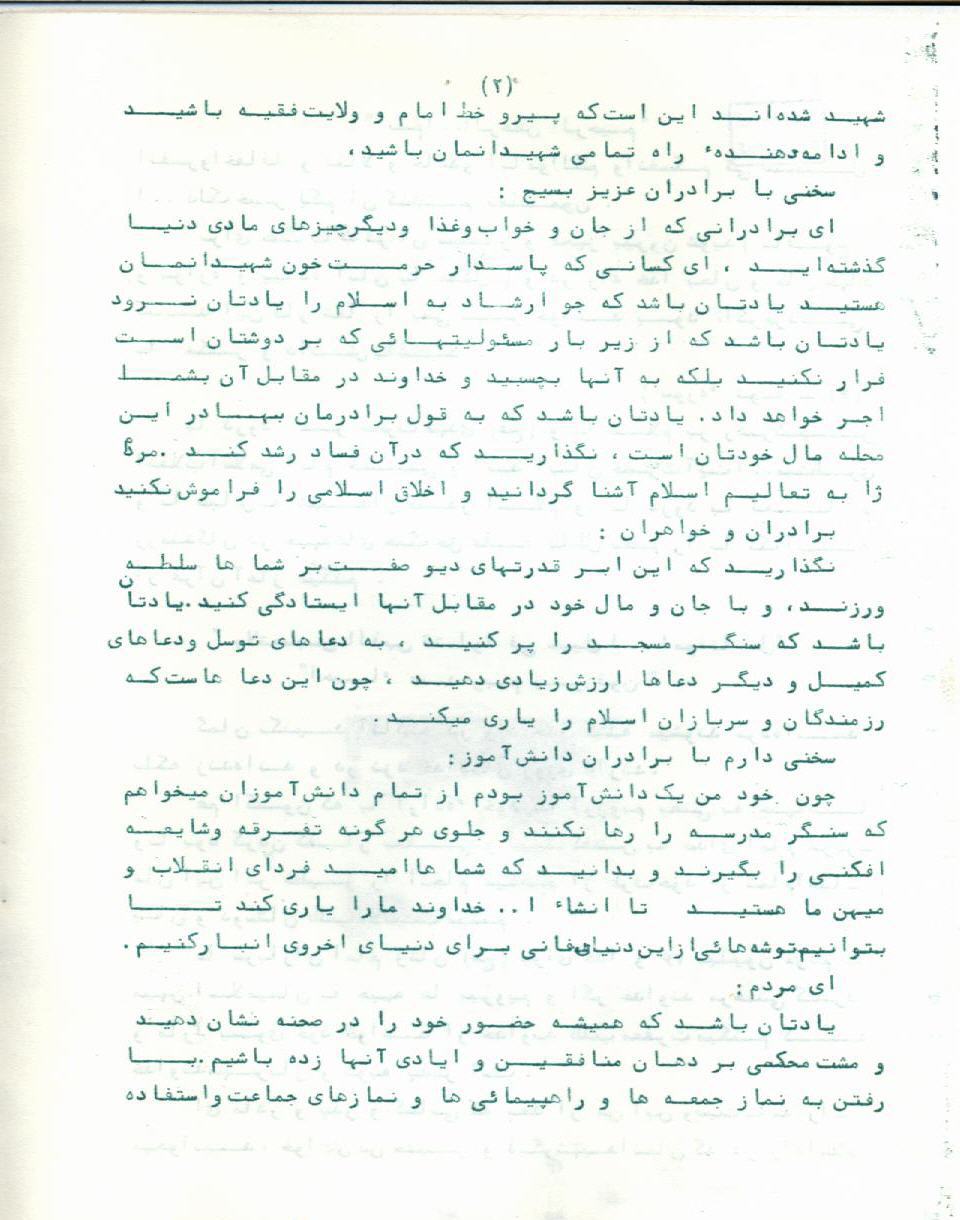 (۲)
شهید شده‌اند این است که پیرو خط امام و ولایت فقیه باشید
و ادامه‌دهندهٔ راه تمامی شهیدانمان باشید،
سخنی با برادران عزیز بسیج :
ای برادرانی که از جان و خواب وغذا ودیگرچیزهای مادی دنیا
گذشته‌اید ، ای کسانی که پاسدار حرمت خون شهیدانمان
هستید یادتان باشد که جو ارشاد به اسلام را یادتان نرود
یادتان باشد که از زیر بار مسئولیتهائی که بر دوشتان است
فرار نکنید بلکه به آنها بچسبید و خداوند در مقابل آن بشما
اجر خواهد داد. یادتان باشد که به قول برادرمان بهادر این
محله مال خودتان است ، نگذارید که درآن فساد رشد کند .مرگ
ژا به تعالیم اسلام آشنا گردانید و اخلاق اسلامی را فراموش نکنید
برادران و خواهران :
نگذارید که این ابر قدرتهای دیو صفت بر شما ها سلطه
ورزند، و با جان و مال خود در مقابل آنها ایستادگی کنید.یادتان
باشد که سنگر مسجد را پر کنید ، به دعاهای توسل ودعاهای
کمیل و دیگر دعاها ارزش زیادی دهید ، چون این دعا هاست که
رزمندگان و سربازان اسلام را یاری میکند.
سخنی دارم با برادران دانش‌آموز:
چون خود من یک دانش‌آموز بودم از تمام دانش‌آموزان میخواهم
که سنگر مدرسه را رها نکنند و جلوی هر گونه تفرقه وشایعه
افکنی را بگیرند و بدانید که شما هاامید فردای انقلاب و
میهن ما هستید تا انشاء ا.. خداوند مارا یاری کند تا
بتوانیم‌توشه‌هائی‌ازاین دنیای‌فانی برای دنیای اخروی انبارکنیم.
ای مردم:
یادتان باشد که همیشه حضور خود را در صحنه نشان دهید
و مشت محکمی بر دهان منافقین و ایادی آنها زده باشیم.با
رفتن به نماز جمعه ها و راهپیمائی ها و نمازهای جماعت واستفاده